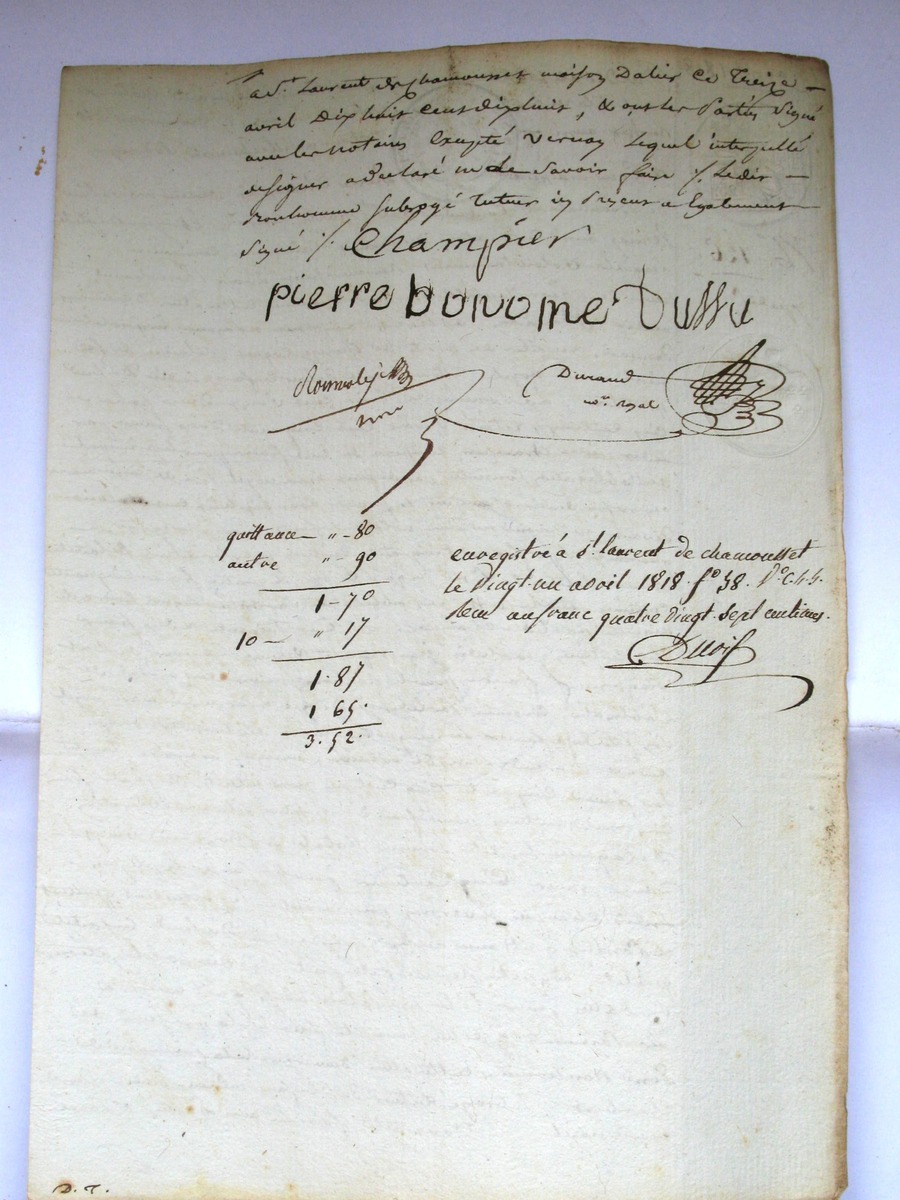 a St. Laurent de chamousset maison Dalier Ce Treize
avril Dix huit cent dixhuit, & ont les Parties Signé
avec les Notaires Excepté Vernay Lequel interpellé
de signer a declaré ne le Savoir faire ·/. Ledit
Bonhomme Subrogé Tuteur ici Présent a Egalement
Signé ·/.
Champier
pierre bonome Dussu
Durand
no.re royal
quittance — " - 80
autre " - 90
1 - 70
10 — " 17
1 . 87
1 65.
3. 52.
enregistré à St. laurent de chamousset
le Vingt-un avril 1818. fo. 58. Vo. c. 4. 5.
Reçu un franc quatre Vingt-sept centimes.
D. T.